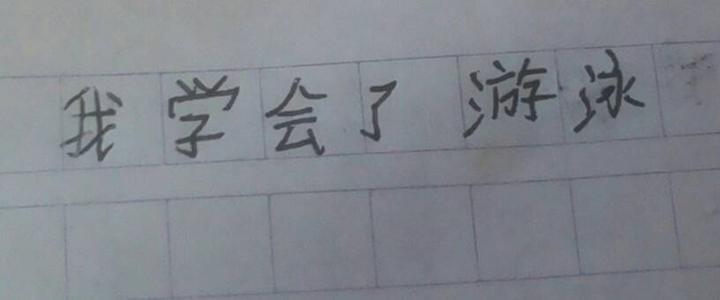 我学会了游泳